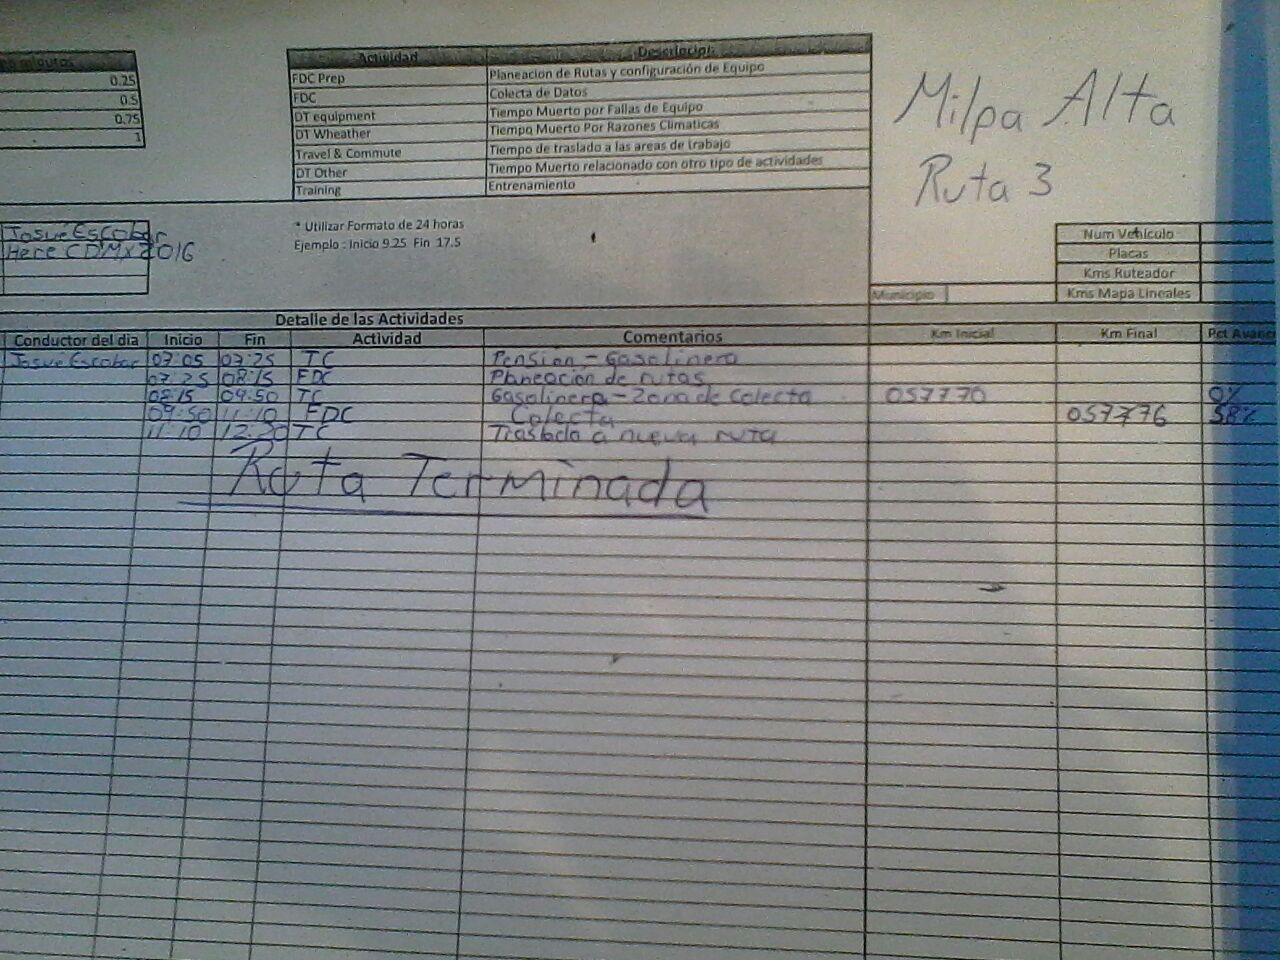 minutos
0.25
0.5
0.75
1
Actividad Descripcion
FDC Prep Planeacion de Rutas y configuración de Equipo
FDC Colecta de Datos
DT equipment Tiempo Muerto por Fallas de Equipo
DT Wheather Tiempo Muerto Por Razones Climaticas
Travel & Commute Tiempo de traslado a las areas de trabajo
DT Other Tiempo Muerto relacionado con otro tipo de actividades
Training Entrenamiento
Milpa Alta
Ruta 3
Josue Escobar
Here CDMX 2016
* Utilizar Formato de 24 horas
Ejemplo : Inicio 9.25 Fin 17.5
Num Vehiculo
Placas
Kms Ruteador
Municipio Kms Mapa Lineales
Detalle de las Actividades
Conductor del dia Inicio Fin Actividad Comentarios Km Inicial Km Final Pct Avanc
Josue Escobar 07:05 07:25 TC Pension - Gasolinera
07:25 08:15 FDC Planeación de rutas
08:15 09:50 TC Gasolinera - Zona de Colecta 057770 0%
09:50 11:10 FDC Colecta 057776 58%
11:10 12:20 TC Traslado a nueva ruta
Ruta Terminada